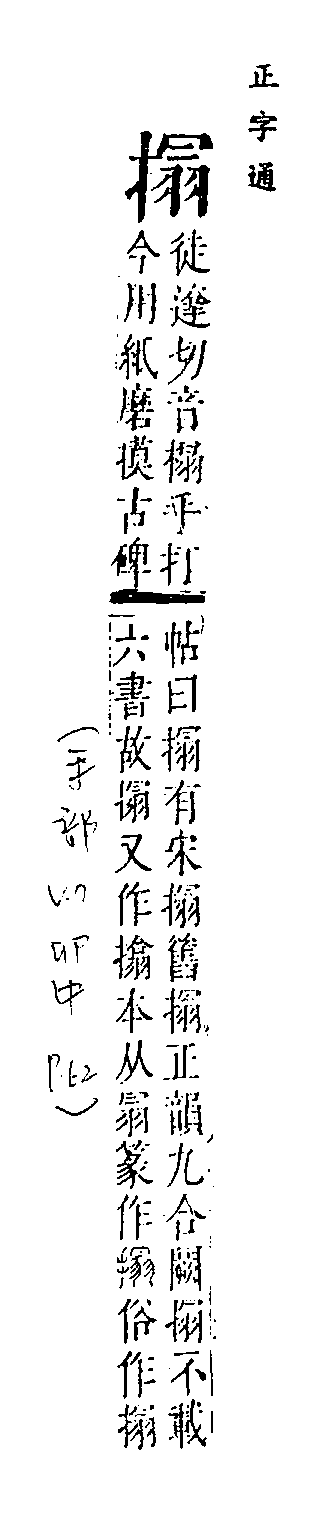 正字通
搨
徒遝切音榻平打
今用紙磨摸古碑
帖曰搨有宋搨舊搨正韻九合闕搨不載
六書故搨又作搚本从𦐇篆作搨俗作搨
(手部 卯中 P.62)